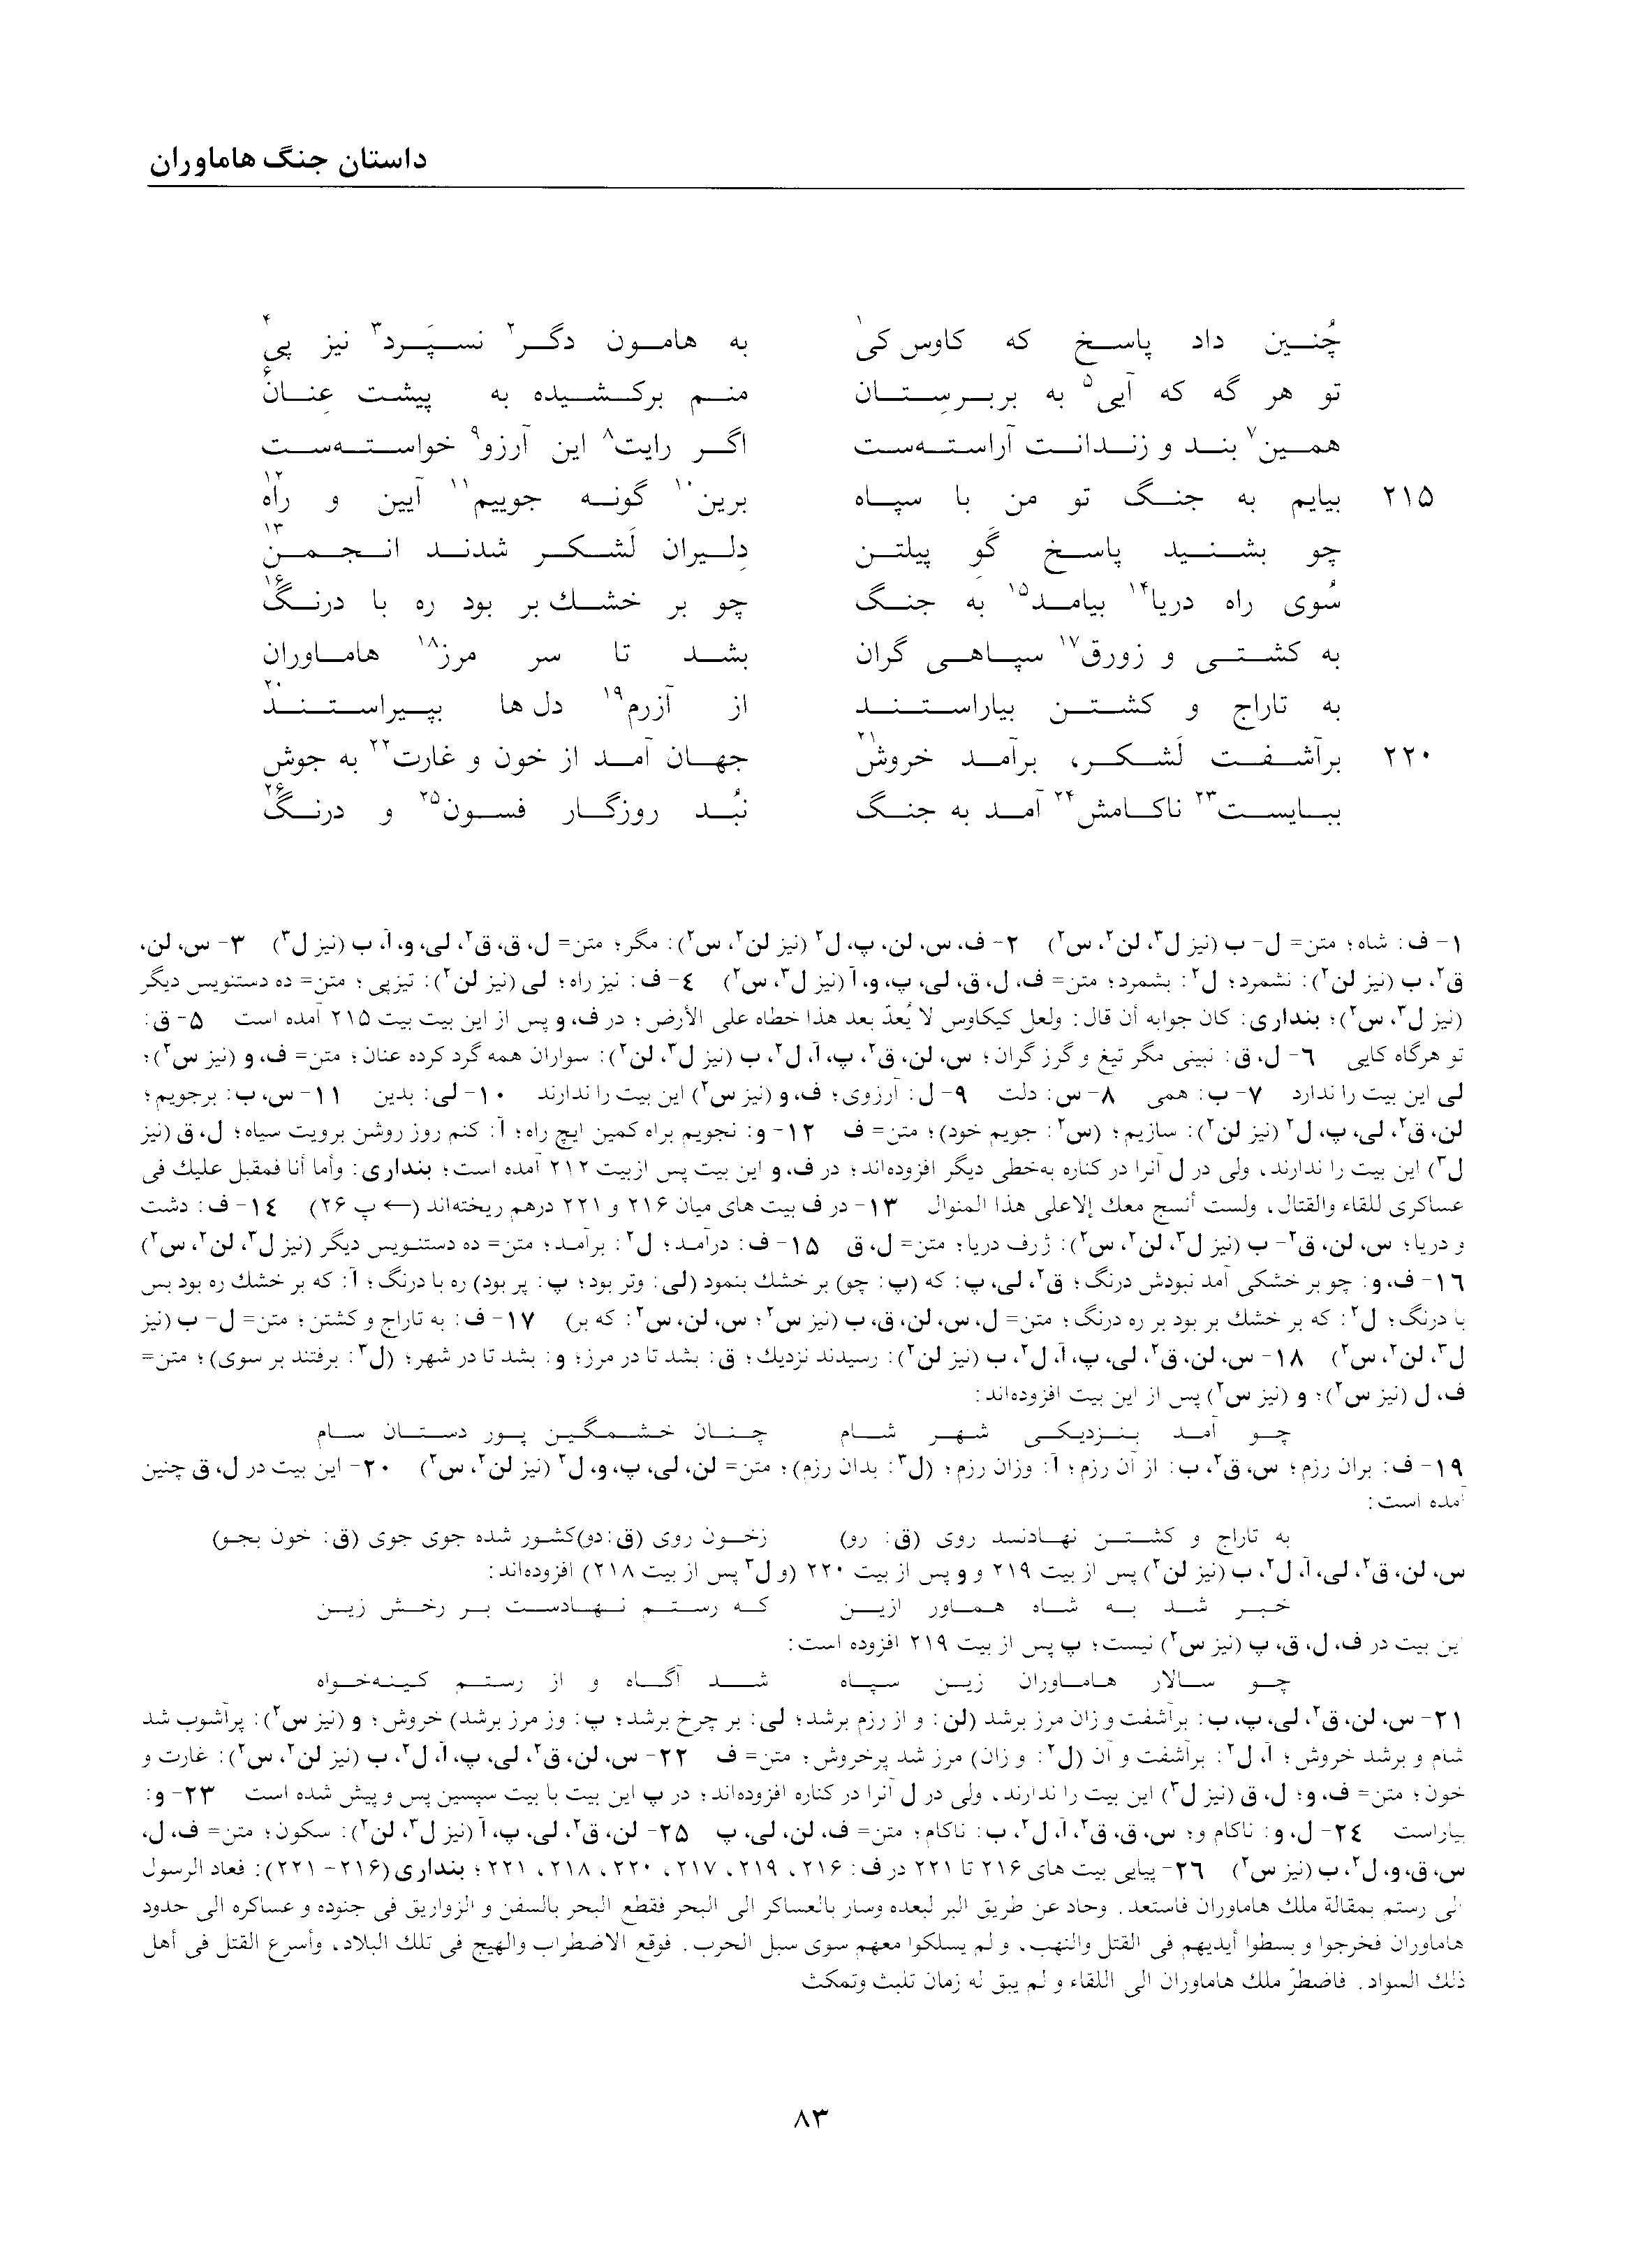 داستان جنگ هاماوران
چُنین داد پاسخ که کاوس کی۱ به هامون دگر۲ نسپَرد۳ نیز پی۴
تو هر گه که آیی۵ به بربرستان منم برکشیده به پیشت عِنان۶
همین۷ بند و زندانت آراسته‌ست اگر رایت۸ این آرزو۹ خواسته‌ست
۲۱۵ بیایم به جنگ تو من با سپاه برین۱۰ گونه جوییم۱۱ آیین و راه۱۲
چو بشنید پاسخ گَوِ پیلتن دلیران لَشکر شدند انجمن۱۳
سُوی راه دریا۱۴ بیامد۱۵ به جنگ چو بر خشك بر بود ره با درنگ۱۶
به کشتی و زورق۱۷ سپاهی گران بشد تا سر مرز۱۸ هاماوران
به تاراج و کشتن بیاراستند از آزرم۱۹ دل‌ها بپیراستند۲۰
۲۲۰ برآشفت لَشکر، برآمد خروش۲۱ جهان آمد از خون و غارت۲۲ به جوش
ببایست۲۳ ناکامش۲۴ آمد به جنگ نبُد روزگار فسون۲۵ و درنگ۲۶
۱- ف: شاه؛ متن= ل- ب (نیز ل۳، لن۲، س۲) ۲- ف، س، لن، پ، ل۲ (نیز لن۲، س۲): مگر؛ متن= ل، ق، ق۲، لی، و، آ، ب (نیز ل۳) ۳- س، لن،
ق۲، ب (نیز لن۲): نشمرد؛ ل۲: بشمرد؛ متن= ف، ل، ق، لی، پ، و، آ (نیز ل۳، س۲) ۴- ف: نیز راه؛ لی (نیز لن۲): تیزپی؛ متن= ده دستنویس دیگر
(نیز ل۳، س۲)؛ بنداری: کان جوابه أن قال: ولعل کیکاوس لا یُعدّ بعد هذا خطاه علی الأرض؛ در ف، و پس از این بیت بیت ۲۱۵ آمده است ۵- ق:
تو هرگاه کایی ۶- ل، ق: نبینی مگر تیغ و گرز گران؛ س، لن، ق۲، پ، آ، ل۲، ب (نیز ل۳، لن۲): سواران همه گرد کرده عنان؛ متن= ف، و (نیز س۲)؛
لی این بیت را ندارد ۷- ب: همی ۸- س: دلت ۹- ل: آرزوی؛ ف، و (نیز س۲) این بیت را ندارند ۱۰- لی: بدین ۱۱- س، ب: برجویم؛
لن، ق۲، لی، پ، ل۲ (نیز لن۲): سازیم؛ (س۲: جویم خود)؛ متن= ف ۱۲- و: نجویم براه کمین ایچ راه؛ آ: کنم روز روشن برویت سیاه؛ ل، ق (نیز
ل۳) این بیت را ندارند، ولی در ل آنرا در کناره به‌خطی دیگر افزوده‌اند؛ در ف، و این بیت پس ازبیت ۲۱۲ آمده است؛ بنداری: وأما أنا فمقبل علیك فی
عساکری للقاء والقتال، ولست أنسج معك إلاعلی هذا المنوال ۱۳- در ف بیت های میان ۲۱۶ و ۲۲۱ درهم ریخته‌اند (← پ ۲۶) ۱۴- ف: دشت
و دریا؛ س، لن، ق۲- ب (نیز ل۳، لن۲، س۲): ژرف دریا؛ متن= ل، ق ۱۵- ف: درآمد؛ ل۲: برآمد؛ متن= ده دستنویس دیگر (نیز ل۳، لن۲، س۲)
۱۶- ف، و: چو بر خشکی آمد نبودش درنگ؛ ق۲، لی، پ: که (پ: چو) بر خشك بنمود (لی: وتر بود؛ پ: پر بود) ره با درنگ؛ آ: که بر خشك ره بود بس
با درنگ؛ ل۲: که بر خشك بر بود بر ره درنگ؛ متن= ل، س، لن، ق، ب (نیز س۲؛ س، لن، س۲: که بر) ۱۷- ف: به تاراج و کشتن؛ متن= ل- ب (نیز
ل۳، لن۲، س۲) ۱۸- س، لن، ق۲، لی، پ، آ، ل۲، ب (نیز لن۲): رسیدند نزدیك؛ ق: بشد تا در مرز؛ و: بشد تا در شهر؛ (ل۳: برفتند بر سوی)؛ متن=
ف، ل (نیز س۲)؛ و (نیز س۲) پس از این بیت افزوده‌اند:
چو آمد بنزدیکی شهر شام چنان خشمگین پور دستان سام
۱۹- ف: بران رزم؛ س، ق۲، ب: از آن رزم؛ آ: وزان رزم؛ (ل۳: بدان رزم)؛ متن= لن، لی، پ، و، ل۲ (نیز لن۲، س۲) ۲۰- این بیت در ل، ق چنین
آمده است:
به تاراج و کشتن نهادند روی (ق: رو) زخون روی (ق: دو)کشور شده جوی جوی (ق: خون بجو)
س، لن، ق۲، لی، آ، ل۲، ب (نیز لن۲) پس از بیت ۲۱۹ و و پس از بیت ۲۲۰ (و ل۳ پس از بیت ۲۱۸) افزوده‌اند:
خبر شد به شاه هماور ازین که رستم نهادست بر رخش زین
این بیت در ف، ل، ق، پ (نیز س۲) نیست؛ پ پس از بیت ۲۱۹ افزوده است:
چو سالار هاماوران زین سپاه شد آگاه و از رستم کینه‌خواه
۲۱- س، لن، ق۲، لی، پ، ب: برآشفت و زان مرز برشد (لن: و از رزم برشد؛ لی: بر چرخ برشد؛ پ: وز مرز برشد) خروش؛ و (نیز س۲): پرآشوب شد
شام و برشد خروش؛ آ، ل۲: برآشفت و آن (ل۲: و زان) مرز شد پرخروش؛ متن= ف ۲۲- س، لن، ق۲، لی، پ، آ، ل۲، ب (نیز لن۲، س۲): غارت و
خون؛ متن= ف، و؛ ل، ق (نیز ل۳) این بیت را ندارند، ولی در ل آنرا در کناره افزوده‌اند؛ در پ این بیت با بیت سپسین پس و پیش شده است ۲۳- و:
بیاراست ۲۴- ل، و: ناکام و؛ س، ق، ق۲، آ، ل۲، ب: ناکام؛ متن= ف، لن، لی، پ ۲۵- لن، ق۲، لی، پ، آ (نیز ل۳، لن۲): سکون؛ متن= ف، ل،
س، ق، و، ل۲، ب (نیز س۲) ۲۶- پیایی بیت های ۲۱۶ تا ۲۲۱ در ف: ۲۱۶، ۲۱۹، ۲۱۷، ۲۲۰، ۲۱۸، ۲۲۱؛ بنداری (۲۱۶- ۲۲۱): فعاد الرسول
الی رستم بمقالة ملك هاماوران فاستعد. وحاد عن طریق البر لبعده وسار بالعساکر الی البحر فقطع البحر بالسفن و الزواریق فی جنوده و عساکره الی حدود
هاماوران فخرجوا و بسطوا أیدیهم فی القتل والنهب، و لم یسلکوا معهم سوی سبل الحرب. فوقع الاضطراب والهیج فی تلك البلاد، وأسرع القتل فی أهل
ذلك السواد. فاضطرّ ملك هاماوران الی اللقاء و لم یبق له زمان تلبث وتمکث
۸۳